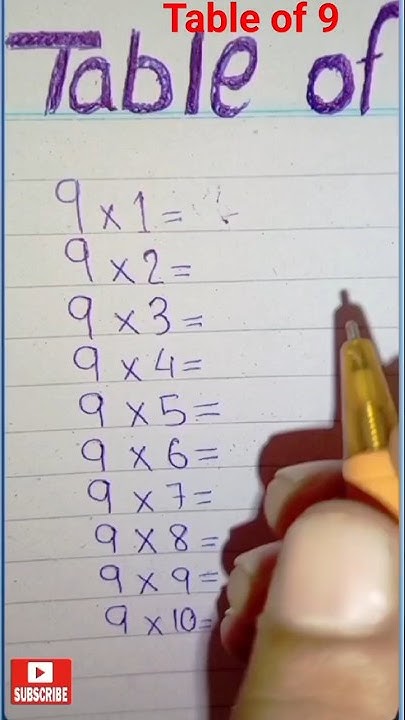 Table of 9
Table of
9 x 1 =
9 x 2 =
9 x 3 =
9 x 4 =
9 x 5 =
9 x 6 =
9 x 7 =
9 x 8 =
9 x 9 =
9 x 10 =
SUBSCRIBE